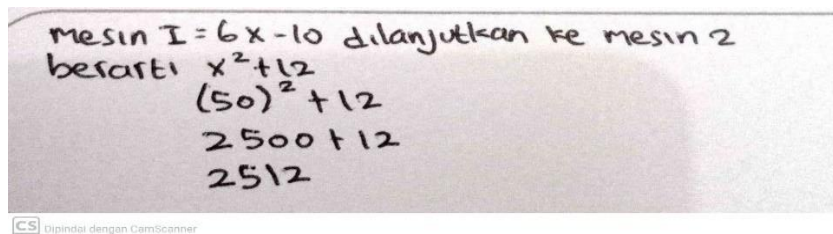 mesin I = 6x - 10 dilanjutkan ke mesin 2
berarti x² + 12
(50)² + 12
2500 + 12
2512
CS Dipindai dengan CamScanner